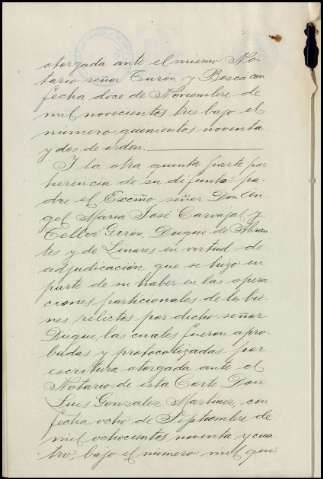 otorgada ante el mismo No-
tario señor Turón y Boscá con
fecha doce de Noviembre de
mil novecientos tres bajo el
numero quinientos noventa
y dos de orden.
Y la otra quinta parte por
herencia de su difunto pa-
dre el Excmo. señor Don An-
gel María José Carvajal y
Tellez Girón, Duque de Abran-
tes y de Linares en virtud de
adjudicación que se hizo en
parte de su haber en las opera-
ciones particionales de los bie-
nes relictos por dicho señor
Duque las cuales fueron apro-
badas y protocolizadas por
escritura otorgada ante el
Notario de esta Corte Don
Luis Gonzalez Martinez, con
fecha ocho de Septiembre de
mil ochocientos noventa y cua-
tro, bajo el numero mil qui-